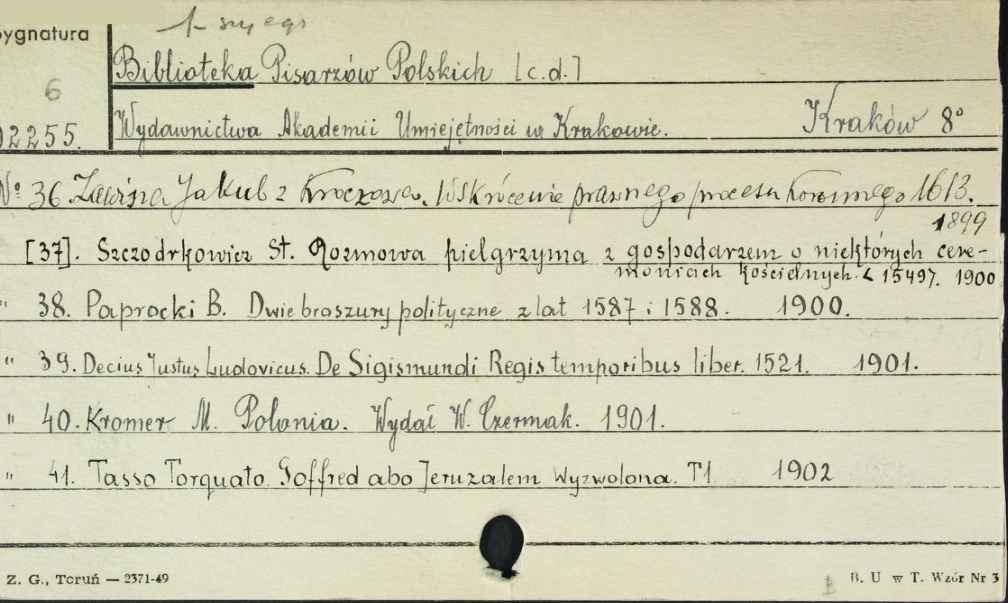 1 szy egz
ygnatura
Biblioteka Pisarzów Polskich [c.d.]
6
Wydawnictwa Akademii Umiejętności w Krakowie. Kraków 8°
02255.
No 36 Zawisza Jakub z Kroczowa. Wskrócenie prawnego procesu koronnego 1613.
1899
[37]. Szczodrkowicz St. Rozmowa pielgrzyma z gospodarzem o niektórych cere-
moniach kościelnych. z 1549r. 1900
" 38. Paprocki B. Dwie broszury polityczne z lat 1587 i 1588. 1900.
" 39. Decius Justus Ludovicus. De Sigismundi Regis temporibus liber. 1521. 1901.
" 40. Kromer M. Polonia. Wydał W. Czermak. 1901.
" 41. Tasso Torquato Goffred abo Jeruzalem wyzwolona. T1 1902
Z. G., Toruń — 2371-49
B. U w T. Wzór Nr 3